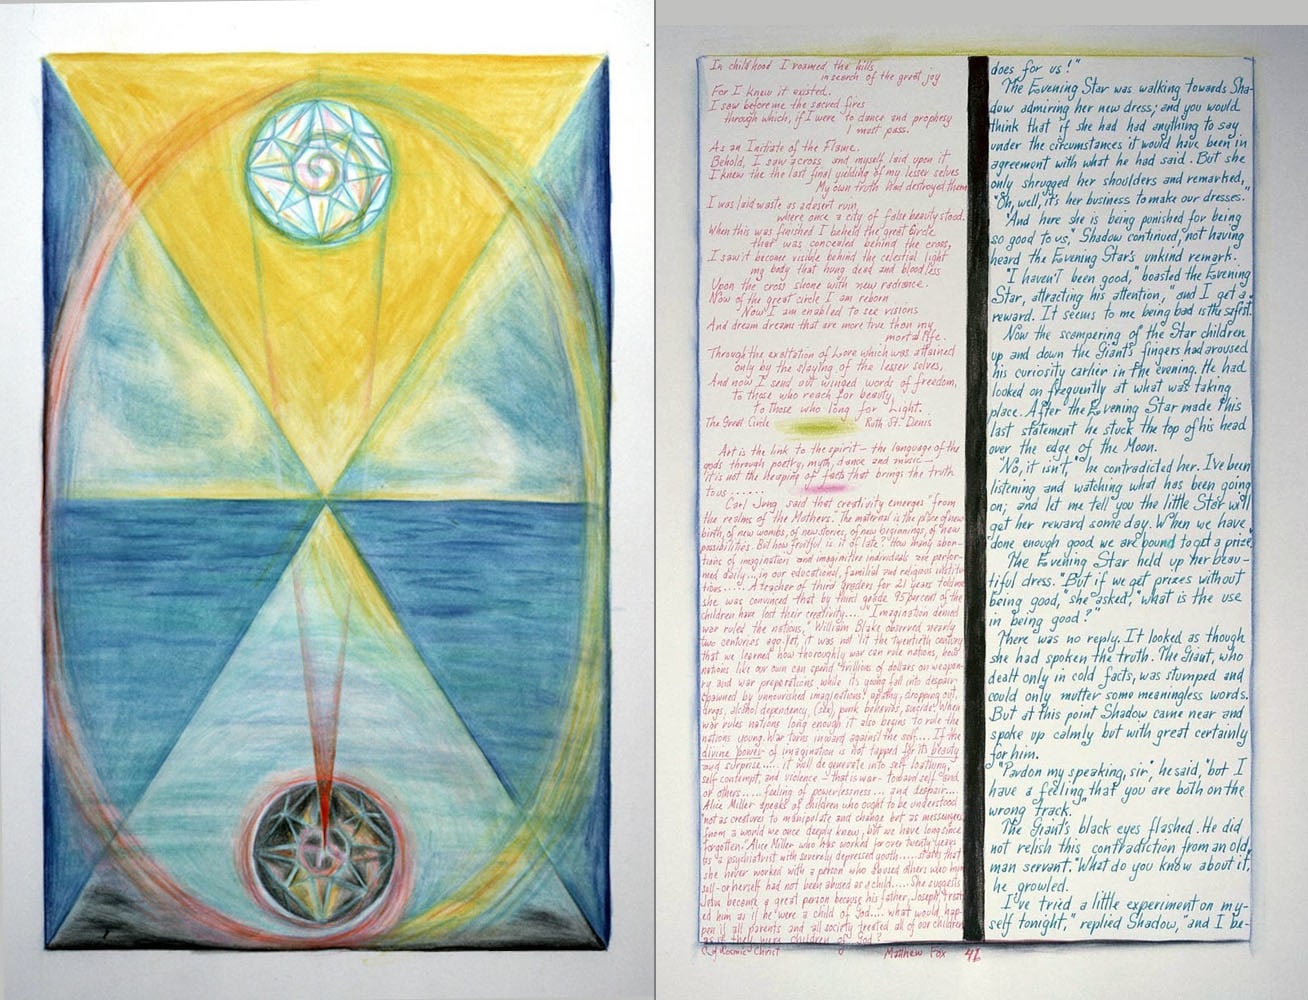 In childhood I roamed the hills
in search of the great joy
For I knew it existed.
I saw before me the sacred fires
through which, if I were to dance and prophesy
I must pass.
As an Initiate of the Flame.
Behold, I saw across and myself laid upon it
I knew the the last final yielding of my lesser selves
My own truth had destroyed them
I was laid waste as a desert ruin,
where once a city of false beauty stood.
When this was finished I beheld the great Circle
that was concealed behind the cross,
I saw it become visible behind the celestial light
my body that hung dead and bloodless
Upon the cross shone with new radiance.
Now of the great circle I am reborn
Now I am enabled to see visions
And dream dreams that are more true than my
mortal life.
Through the exaltation of Love which was attained
only by the slaying of the lesser selves,
And now I send out winged words of freedom,
to those who reach for beauty,
to those who long for Light.
The Great Circle Ruth St. Denis
Art is the link to the spirit — the language of the
gods through poetry, myth, dance and music —
It is not the heaping of facts that brings the truth
to us ......
Carl Jung said that creativity emerges "from
the realms of the Mothers. The maternal is the place of new
birth, of new wombs, of new stories, of new beginnings, of new
possibilities. But how fruitful is it of late? How many abor-
tions of imagination and imaginative individuals are perfor-
med daily... in our educational, familial and religious institu
tions..... A teacher of third graders for 21 years told me
she was convinced that by third grade 95 percent of the
children have lost their creativity.... "Imagination denied
war ruled the nations," William Blake observed nearly
two centuries ago. Yet, it was not til the twentieth century
that we learned how thoroughly war can rule nations, how
nations like our own can spend trillions of dollars on weapon-
ry and war preperations while its young fall into despair
spawned by unnourished imaginations: apathy, dropping out,
drugs, alcohol dependency, (sex), punk behaviors, suicide. When
war rules nations long enough it also begins to rule the
nations young. War turns inward against the self.... If the
divine power of imagination is not tapped for its beauty
and surprise..... it will degenerate into self loathing,
self contempt, and violence — that is war - toward self and
or others..... feeling of powerlessness... and despair....
Alice Miller speaks of children who ought to be understood
"not as creatures to manipulate and change but as messengers
from a world we once deeply knew, but we have long since
forgotten." Alice Miller who has worked for over twenty years
as a psychiatrist with severely depressed youth..... states that
she never worked with a person who abused others who him
self - or herself had not been abused as a child..... She suggests
Jesus became a great person because his father, Joseph, treat-
ed him as if he were a child of God.... what would hap-
pen if all parents and all society treated all of our children
as if they were children of God?
of Cosmic Christ Matthew Fox 46
does for us!"
The Evening Star was walking towards Sha-
dow admiring her new dress; and you would
think that if she had had anything to say
under the circumstances it would have been in
agreement with what he had said. But she
only shrugged her shoulders and remarked,
"Oh, well, it's her business to make our dresses."
"And here she is being punished for being
so good to us," Shadow continued, not having
heard the Evening Star's unkind remark.
"I haven't been good," boasted the Evening
Star, attracting his attention, "and I get a
reward. It seems to me being bad is the safest."
Now the scampering of the Star children
up and down the Giant's fingers had aroused
his curiosity earlier in the evening. He had
looked on frequently at what was taking
place. After the Evening Star made this
last statement he stuck the top of his head
over the edge of the Moon.
"No, it isn't," he contradicted her. I've been
listening and watching what has been going
on; and let me tell you the little Star will
get her reward some day. When we have
done enough good we are bound to get a prize."
The Evening Star held up her beau-
tiful dress. "But if we get prizes without
being good," she asked, "what is the use
in being good?"
There was no reply. It looked as though
she had spoken the truth. The Giant, who
dealt only in cold facts, was stumped and
could only mutter some meaningless words.
But at this point Shadow came near and
spoke up calmly but with great certainly
for him.
"Pardon my speaking, sir," he said, "but I
have a feeling that you are both on the
wrong track."
The Giant's black eyes flashed. He did
not relish this contradiction from an old
man servant. "What do you know about it,"
he growled.
"I've tried a little experiment on my-
self tonight," replied Shadow, "and I be-